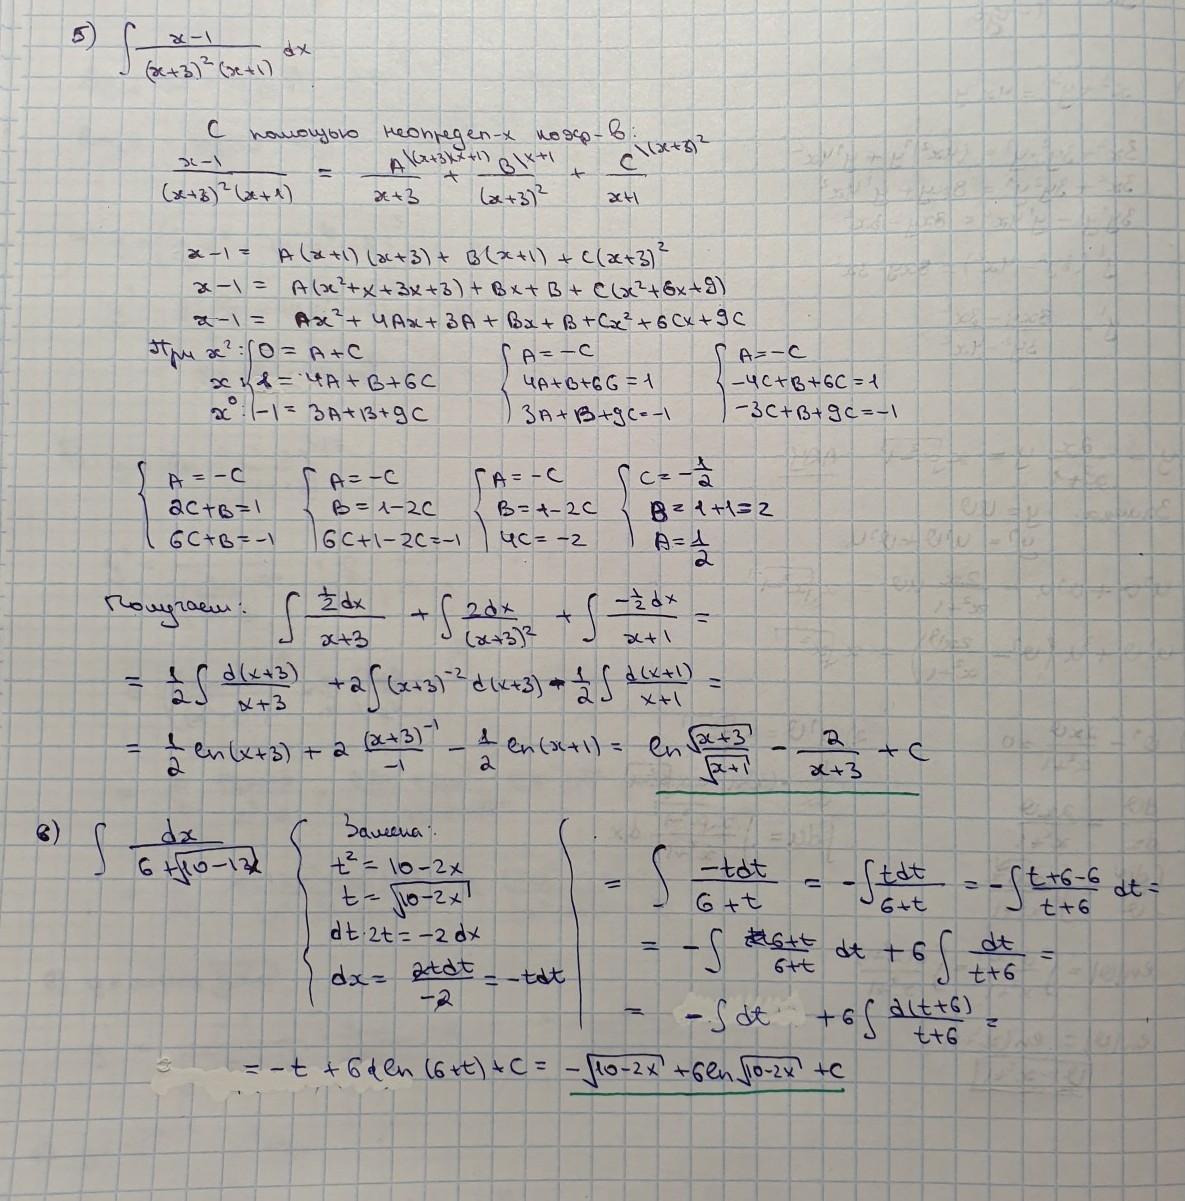 5) ∫ x-1 / (x+3)² (x+1) dx
С помощью неопредел-х коэф-в:
x-1 / (x+3)² (x+1) = A \(x+3)(x+1) / x+3 + B \x+1 / (x+3)² + C \(x+3)² / x+1
x-1 = A(x+1)(x+3) + B(x+1) + C(x+3)²
x-1 = A(x²+x+3x+3) + Bx+B + C(x²+6x+9)
x-1 = Ax²+4Ax+3A+Bx+B+Cx²+6Cx+9C
При x²: { 0 = A+C { A=-C { A=-C
x: 1 = 4A+B+6C 4A+B+6C=1 -4C+B+6C=1
x⁰: -1 = 3A+B+9C 3A+B+9C=-1 -3C+B+9C=-1
{ A=-C { A=-C { A=-C { C=-1/2
2C+B=1 B=1-2C B=1-2C B=1+1=2
6C+B=-1 6C+1-2C=-1 4C=-2 A=1/2
Получаем: ∫ 1/2 dx / x+3 + ∫ 2dx / (x+3)² + ∫ -1/2 dx / x+1 =
= 1/2 ∫ d(x+3) / x+3 + 2∫(x+3)⁻² d(x+3) - 1/2 ∫ d(x+1) / x+1 =
= 1/2 ln(x+3) + 2 (x+3)⁻¹ / -1 - 1/2 ln(x+1) = ln √(x+3) / √(x+1) - 2 / x+3 + C
6) ∫ dx / 6+√10-12x { Замена:
t² = 10-2x
t = √10-2x
dt·2t = -2dx
dx = 2tdt / -2 = -tdt
= ∫ -tdt / 6+t = -∫ tdt / 6+t = -∫ t+6-6 / t+6 dt =
= -∫ 6+t / 6+t dt + 6∫ dt / t+6 =
= -∫ dt + 6∫ d(t+6) / t+6 =
= -t + 6 ln(6+t) + C = -√10-2x + 6ln √10-2x + C